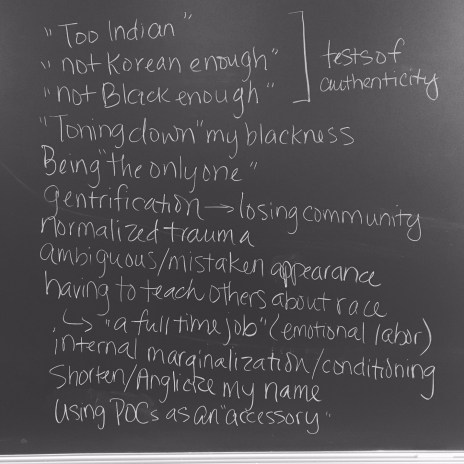 "Too Indian"
"not Korean enough" ] tests of
"not Black enough" authenticity
"Toning down" my blackness
Being "the only one"
gentrification → losing community
normalized trauma
ambiguous/mistaken appearance
having to teach others about race
↳ "a full time job" (emotional labor)
internal marginalization/conditioning
Shorten/Anglicize my name
using POCs as an "accessory"